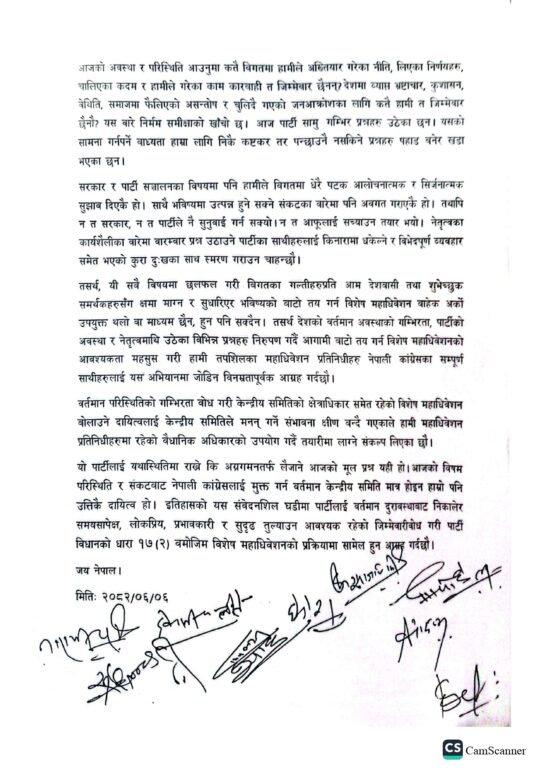 आजको अवस्था र परिस्थिति आउनुमा कतै विगतमा हामीले अख्तियार गरेका नीति, लिएका निर्णयहरु,
चालिएका कदम र हामीले गरेका काम कारवाही त जिम्मेवार छैनन्? देशमा व्याप्त भ्रष्टाचार, कुशासन,
वेथिति, समाजमा फैलिएको असन्तोष र चुलिदै गएको जनआक्रोशका लागि कतै हामी त जिम्मेवार
छैनौ? यस बारे निर्मम समीक्षाको खाँचो छ। आज पार्टी सामु गम्भिर प्रश्नहरु उठेका छन्। यसको
सामना गर्नपर्ने वाध्यता हाम्रा लागि निकै कष्टकर तर पन्छाउनै नसकिने प्रश्नहरु पहाड बनेर खडा
भएका छन्।
सरकार र पार्टी सञ्चालनका विषयमा पनि हामीले विगतमा धेरै पटक आलोचनात्मक र सिर्जनात्मक
सुझाव दिएकै हो। साथै भविष्यमा उत्पन्न हुने सक्ने संकटका वारेमा पनि अवगत गराएकै हो। तथापि
न त सरकार, न त पार्टीले नै सुनुवाई गर्न सक्यो। न त आफूलाई सच्याउन तयार भयो। नेतृत्वका
कार्यशैलीका वारेमा वारम्वार प्रश्न उठाउने पार्टीका साथीहरुलाई किनारामा धकेल्ने र विभेदपूर्ण व्यवहार
समेत भएको कुरा दुःखका साथ स्मरण गराउन चाहन्छौ।
तसर्थ, यी सवै विषयमा छलफल गरी विगतका गल्तीहरुप्रति आम देशवासी तथा शुभेच्छुक
समर्थकहरुसँग क्षमा माग्न र सुधारिएर भविष्यको वाटो तय गर्न विशेष महाधिवेशन वाहेक अर्को
उपयुक्त थलो वा माध्यम छैन, हुन पनि सक्दैन। तसर्थ देशको वर्तमान अवस्थाको गम्भिरता, पार्टीको
अवस्था र नेतृत्वमाथि उठेका विभिन्न प्रश्नहरु निरुपण गर्दै आगामी वाटो तय गर्न विशेष महाधिवेशनको
आवश्यकता महसुस गरी हामी तपशिलका महाधिवेशन प्रतिनिधीहरु नेपाली कांग्रेसका सम्पूर्ण
साथीहरुलाई यस अभियानमा जोडिन विनम्रतापूर्वक आग्रह गर्दछौ।
वर्तमान परिस्थितिको गम्भिरता बोध गरी केन्द्रीय समितिको क्षेत्राधिकार समेत रहेको विशेष महाधिवेशन
बोलाउने दायित्वलाई केन्द्रीय समितिले मनन् गर्ने संभावना क्षीण बन्दै गएकाले हामी महाधिवेशन
प्रतिनिधीहरुमा रहेको वैधानिक अधिकारको उपयोग गर्दै तयारीमा लाग्ने संकल्प लिएका छौ।
यो पार्टीलाई यथास्थितिमा राख्ने कि अग्रगमनतर्फ लैजाने आजको मूल प्रश्न यही हो। आजको विषम
परिस्थिति र संकटबाट नेपाली कांग्रेसलाई मुक्त गर्न वर्तमान केन्द्रीय समिति मात्र होइन हाम्रो पनि
उत्तिकै दायित्व हो। इतिहासको यस संवेदनशिल घडीमा पार्टीलाई वर्तमान दुरावस्थाबाट निकालेर
समयसापेक्ष, लोकप्रिय, प्रभावकारी र सुदृढ तुल्याउन आवश्यक रहेको जिम्मेवारीबोध गरी पार्टी
विधानको धारा १७(२) वमोजिम विशेष महाधिवेशनको प्रक्रियामा सामेल हुन आग्रह गर्दछौ।
जय नेपाल।
मितिः २०८२/०६/०६
CS CamScanner